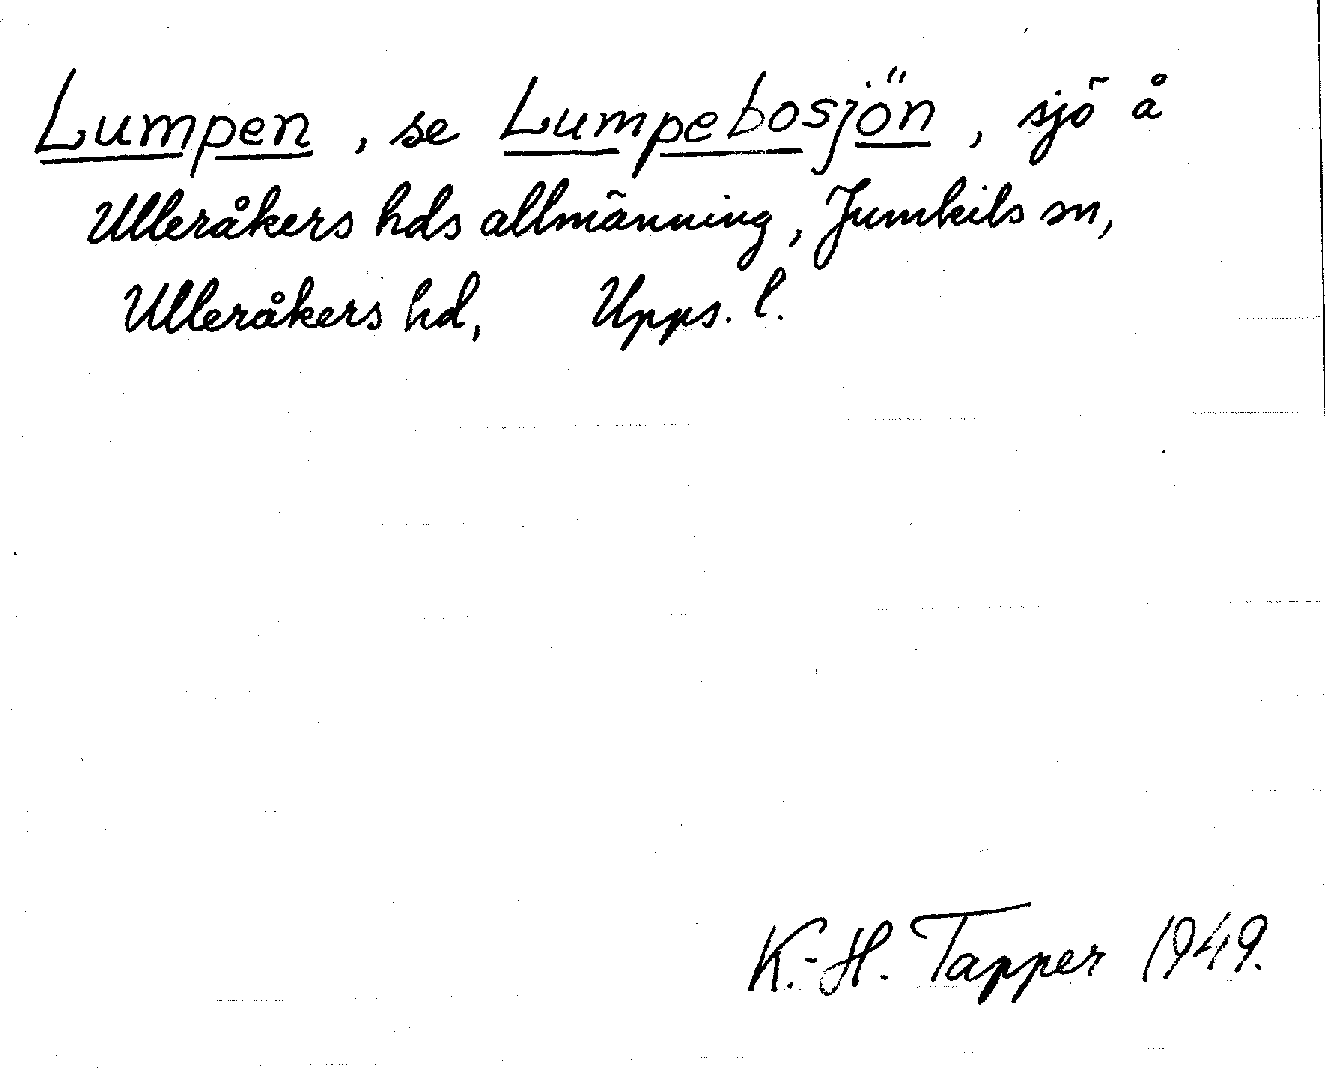 Lumpen, se Lumpebosjön, sjö å
Ulleråkers hds allmänning, Jumkils sn,
Ulleråkers hd, Upps. l.
K.-H. Tapper 1949.